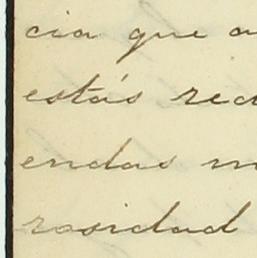 cia que a
estás rec
endas m
rosidad